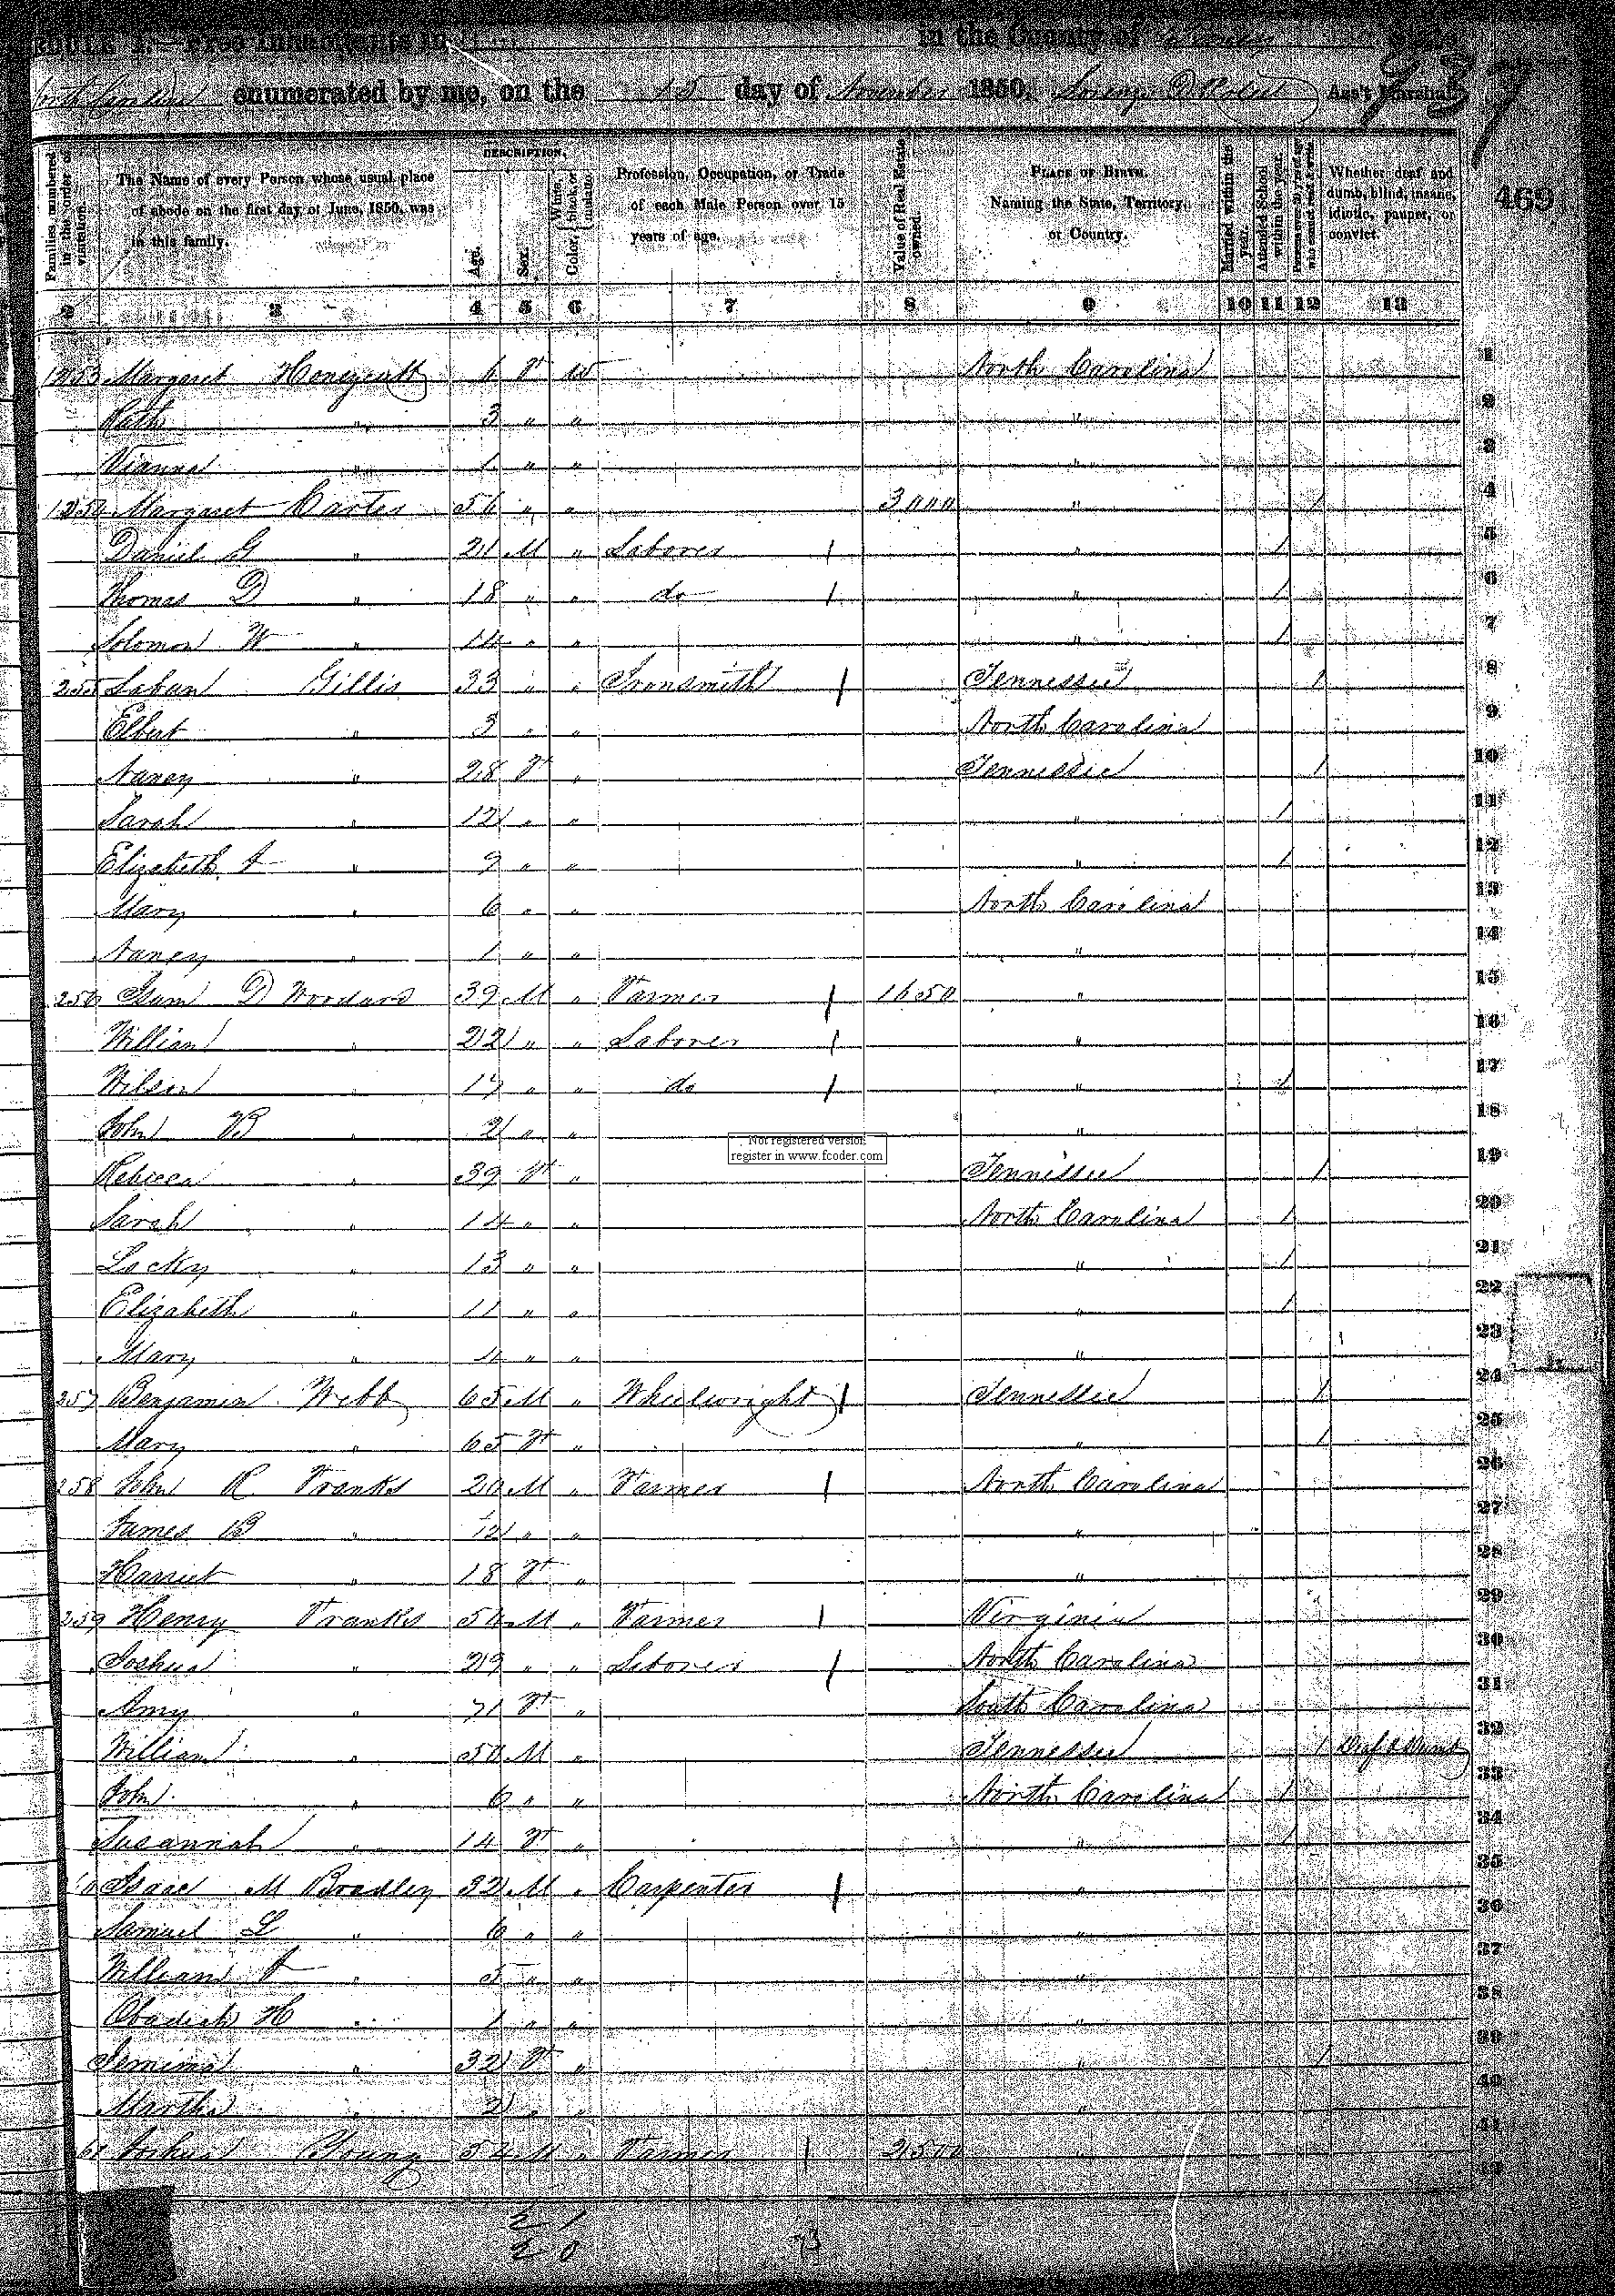 EDULE I.—Free Inhabitants in in the County of State
North Carolina enumerated by me, on the 15 day of November 1850. Ass't Marshal.
737
469
Families numbered in the order of visitation.
The Name of every Person whose usual place of abode on the first day of June, 1850, was in this family.
DESCRIPTION.
Age.
Sex.
Color, White, black, or mulatto.
Profession, Occupation, or Trade of each Male Person over 15 years of age.
Value of Real Estate owned.
PLACE OF BIRTH. Naming the State, Territory, or Country.
Married within the year.
Attended School within the year.
Persons over 20 y'rs of age who cannot read & write.
Whether deaf and dumb, blind, insane, idiotic, pauper, or convict.
2 3 4 5 6 7 8 9 10 11 12 13
1253 Margaret Honeycutt 6 F W North Carolina 1
Ruth " 3 " " " 2
Vianna " 1 " " " 3
1254 Margaret Carter 56 " " 3000 " / 4
Daniel G " 21 M " Laborer / " / 5
Thomas D " 18 " " do / " / 6
Solomon W " 14 " " " / 7
255 Laban Gillis 33 " " Ironsmith / Tennessee / 8
Elbert " 3 " " North Carolina 9
Nancy " 28 F " Tennessee / 10
Sarah " 12 " " " / 11
Elizabeth A " 9 " " " / 12
Mary " 6 " " North Carolina 13
Nancy " 1 " " " 14
256 Isam D Woodard 39 M " Farmer / 1650 " 15
William " 22 " " Laborer / " 16
Wilson " 17 " " do / " / 17
John B " 2 " " " 18
Not registered version
register in www.fcoder.com
Rebecca " 39 F " Tennessee / 19
Sarah " 14 " " North Carolina / 20
Locky " 13 " " " / 21
Elizabeth " 11 " " " / 22
Mary " 4 " " " 23
257 Benjamin Webb 65 M " Wheelwright / Tennessee / 24
Mary " 65 F " " / 25
258 John R. Franks 20 M " Farmer / North Carolina 26
James B " 1/12 " " " 27
Harriet " 18 F " " 28
259 Henry Franks 54 M " Farmer / Virginia 29
Joshua " 29 " " Laborer / North Carolina 30
Amy " 71 F " South Carolina 31
William " 50 M " Tennessee / Deaf & Dumb 32
John " 6 " " North Carolina / 33
Susannah " 14 F " " / 34
Isaac M Bradley 32 M " Carpenter / " 35
Samuel L " 6 " " " 36
William A " 5 " " " 37
Obadiah H " 1 " " " 38
Jemima " 32 F " " / 39
Martha " 2 " " " 40
61 Joshua Young 54 M " Farmer / 2500 " 41
42